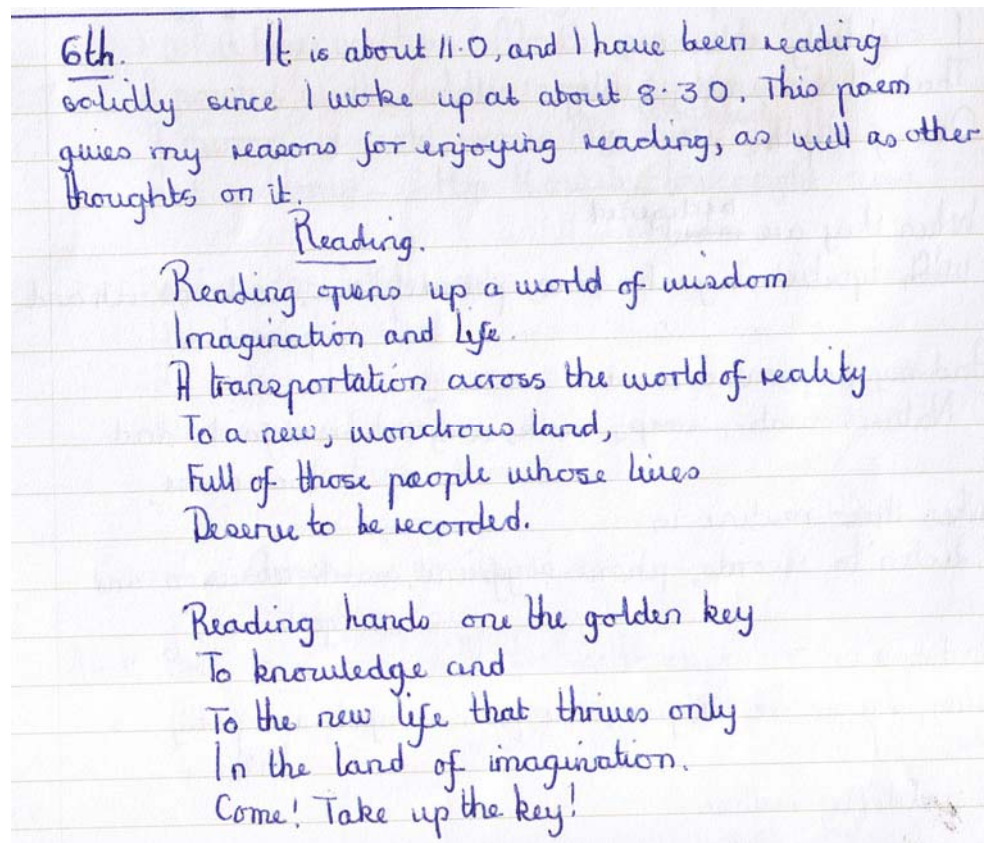 6th. It is about 11.0, and I have been reading
solidly since I woke up at about 8.30. This poem
gives my reasons for enjoying reading, as well as other
thoughts on it.
Reading.
Reading opens up a world of wisdom
Imagination and life.
A transportation across the world of reality
To a new, wondrous land,
Full of those people whose lives
Deserve to be recorded.
Reading hands one the golden key
To knowledge and
To the new life that thrives only
In the land of imagination.
Come! Take up the key!